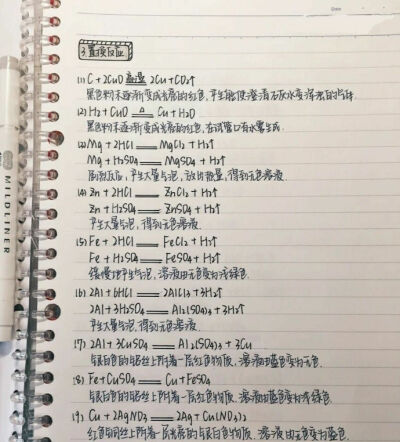 3.置换反应
(1) C + 2CuO 高温 2Cu+CO2↑
黑色粉末逐渐变成光亮的红色,产生能使澄清石灰水变浑浊的气体.
(2) H2 + CuO △ Cu + H2O
黑色粉末逐渐变成光亮的红色,在试管口有水雾生成.
(3) Mg + 2HCl ═ MgCl2 + H2↑
Mg + H2SO4 ═ MgSO4 + H2↑
剧烈反应,产生大量气泡,放出热量,得到无色溶液.
(4) Zn + 2HCl ═ ZnCl2 + H2↑
Zn + H2SO4 ═ ZnSO4 + H2↑
产生大量气泡,得到无色溶液.
(5) Fe + 2HCl ═ FeCl2 + H2↑
Fe + H2SO4 ═ FeSO4 + H2↑
缓慢地产生气泡,溶液由无色变为浅绿色.
(6) 2Al + 6HCl ═ 2AlCl3 + 3H2↑
2Al + 3H2SO4 ═ Al2(SO4)3 + 3H2↑
产生大量气泡,得到无色溶液.
(7) 2Al + 3CuSO4 ═ Al2(SO4)3 + 3Cu
银白色的铝丝上附着一层红色物质,溶液由蓝色变为无色.
(8) Fe + CuSO4 ═ Cu + FeSO4
银白色的铁丝上附着一层红色物质,溶液由蓝色变为浅绿色.
(9) Cu + 2AgNO3 ═ 2Ag + Cu(NO3)2
红色铜丝上附着一层光亮的银白色物质,溶液由无色变为蓝色.
MILDLINER